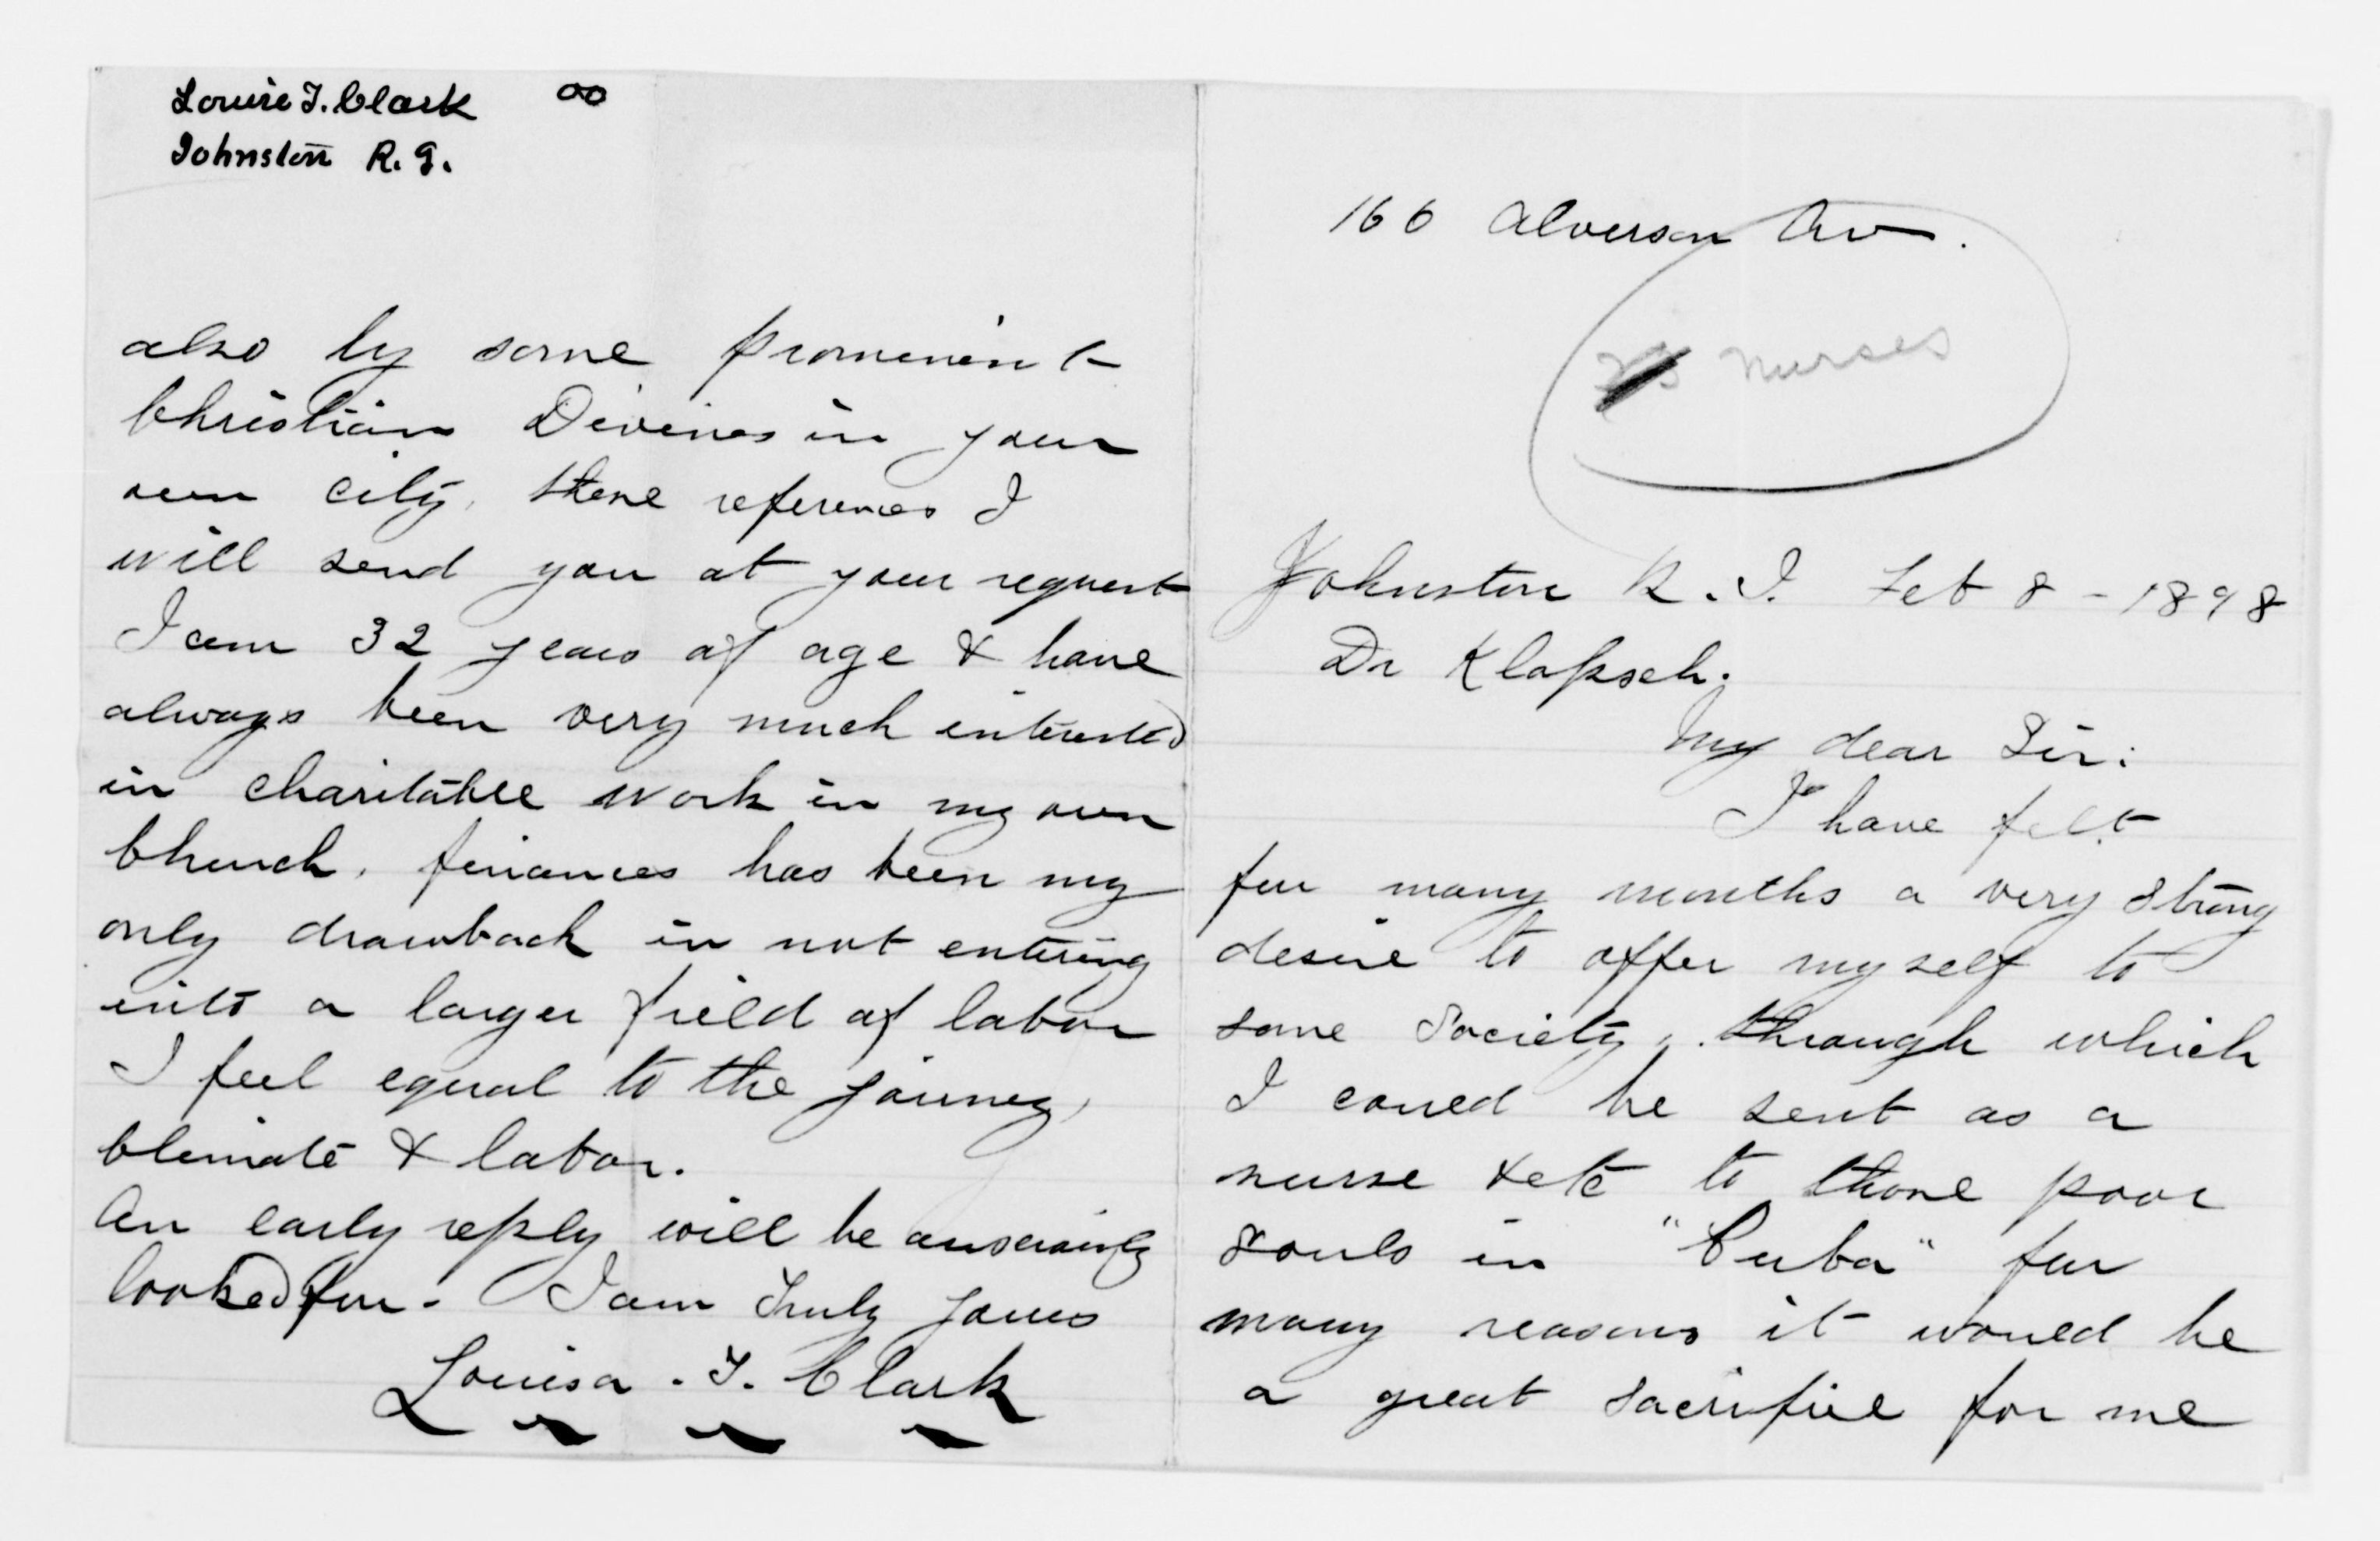 Louise T. Clark
Johnston R.I.
also by some prominent
Christian Devines in your
own city. these references I
will send you at your request
I am 32 years of age & have
always been very much interested
in charitable work in my own
Church. finances has been my
only drawback in not entering
into a larger field of labor
I feel equal to the journey,
Climate & labor.
An early reply will be anxiously
looked for. I am Truly yours
Louisa. T. Clark
166 Alverson Av.
Nurses
Johnston R.I. Feb 8 - 1898
Dr Klopsch.
My dear Sir:
I have felt
for many months a very strong
desire to offer myself to
some Society, through which
I could be sent as a
nurse &etc to those poor
souls in "Cuba" for
many reasons it would be
a great sacrifice for me